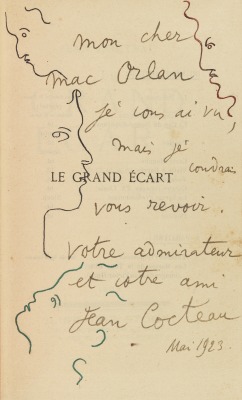 mon cher
mac Orlan
je vous ai vu,
mais je
voudrais
LE GRAND ÉCART
vous revoir.
votre admirateur
et votre ami
Jean Cocteau
Mai 1923.